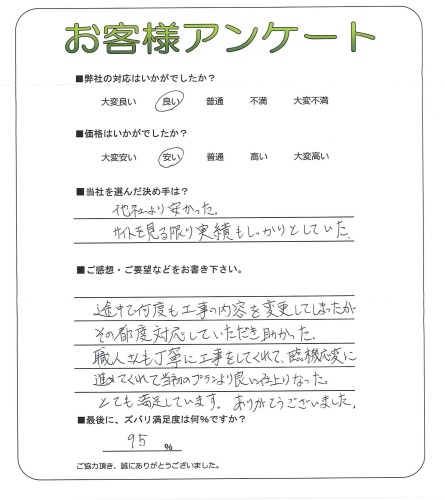 お客様アンケート
■弊社の対応はいかがでしたか?
大変良い 良い 普通 不満 大変不満
■価格はいかがでしたか?
大変安い 安い 普通 高い 大変高い
■当社を選んだ決め手は?
他社より安かった。
サイトを見る限り実績もしっかりとしていた。
■ご感想・ご要望などをお書き下さい。
途中で何度も工事の内容を変更してしまったが
その都度対応していただき助かった。
職人さんも丁寧に工事をしてくれて、臨機応変に
進めてくれて当初のプランより良い仕上りなった。
とても満足しています。ありがとうございました。
■最後に、ズバリ満足度は何%ですか?
95 %
ご協力頂き、誠にありがとうございました。